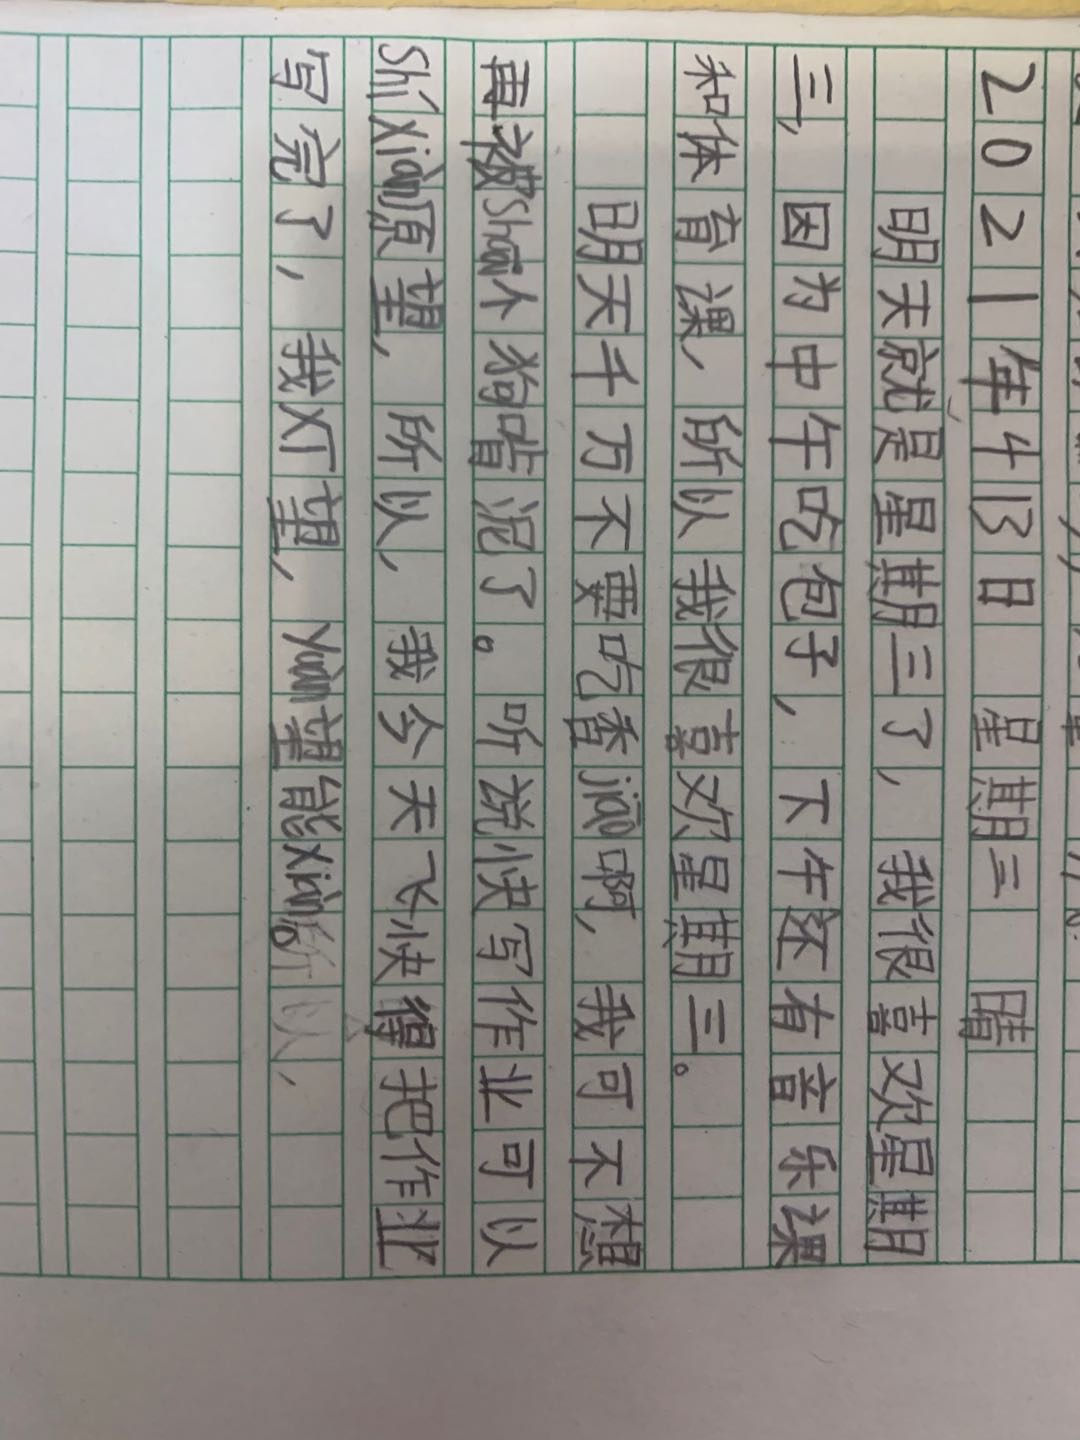 2021年4 13日 星期二 晴
明天就是星期三了，我很喜欢星期
三，因为中午吃包子，下午还有音乐课
和体育课，所以我很喜欢星期三。
明天千万不要吃香jiāo啊，我可不想
再被Shāi个狗啃泥了。听说快写作业可以
ShíXiàn原望，所以，我今天飞快得把作业
写完了，我灯望，yuàn望能Xiàn所以，